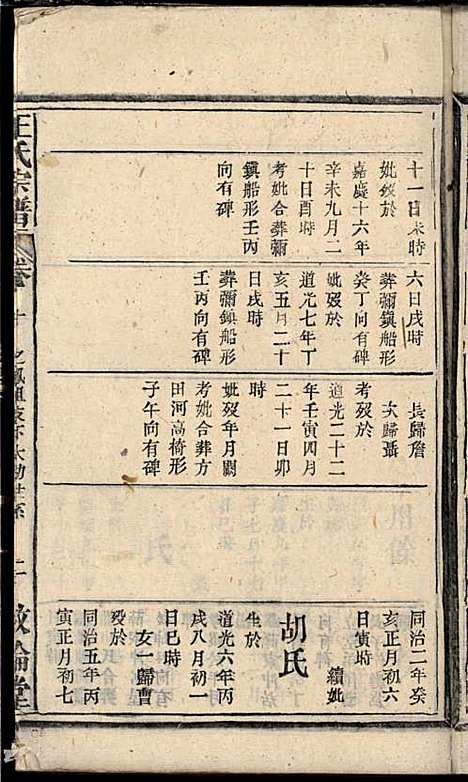 十一日未時
妣歿於
嘉慶十六年
辛未九月二
十日酉時
考妣合葬彌
鎮船形壬丙
向有碑
六日戌時
葬彌鎮船形
癸丁向有碑
妣歿於
道光七年丁
亥五月二十
日戌時
葬彌鎮船形
壬丙向有碑
長歸詹
次歸聶
考歿於
道光二十二
年壬寅四月
二十一日卯
時
妣歿年月闕
考妣合葬方
田河高椅形
子午向有碑
同治二年癸
亥正月初六
日寅時
續妣
胡氏
生於
道光六年丙
戌八月初一
日巳時
女一歸曹
歿於
同治五年丙
寅正月初七
王氏宗譜
敦倫堂